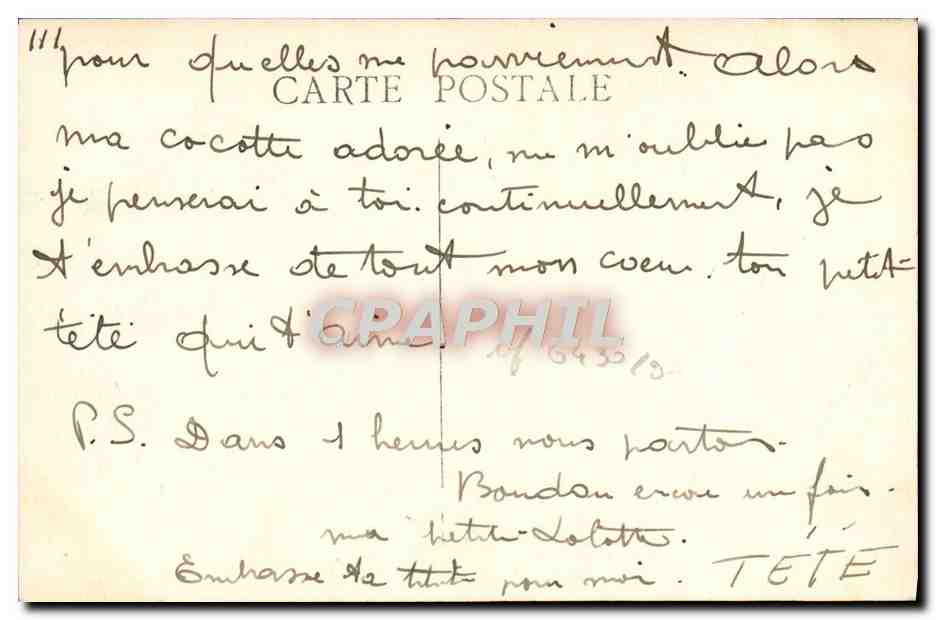 111
pour quelles me parviennent. Alors
CARTE POSTALE
ma cocotte adorée, ne m'oublie pas
je penserai à toi continuellement, je
t'embrasse de tout mon coeur. ton petit-
tété qui t'aime.
CPRAPHIL
6430/9
P.S. Dans 1 heures nous partons.
encore un fois.
ma petite-Lolotte.
Embrasse pour moi. TÉTÉ